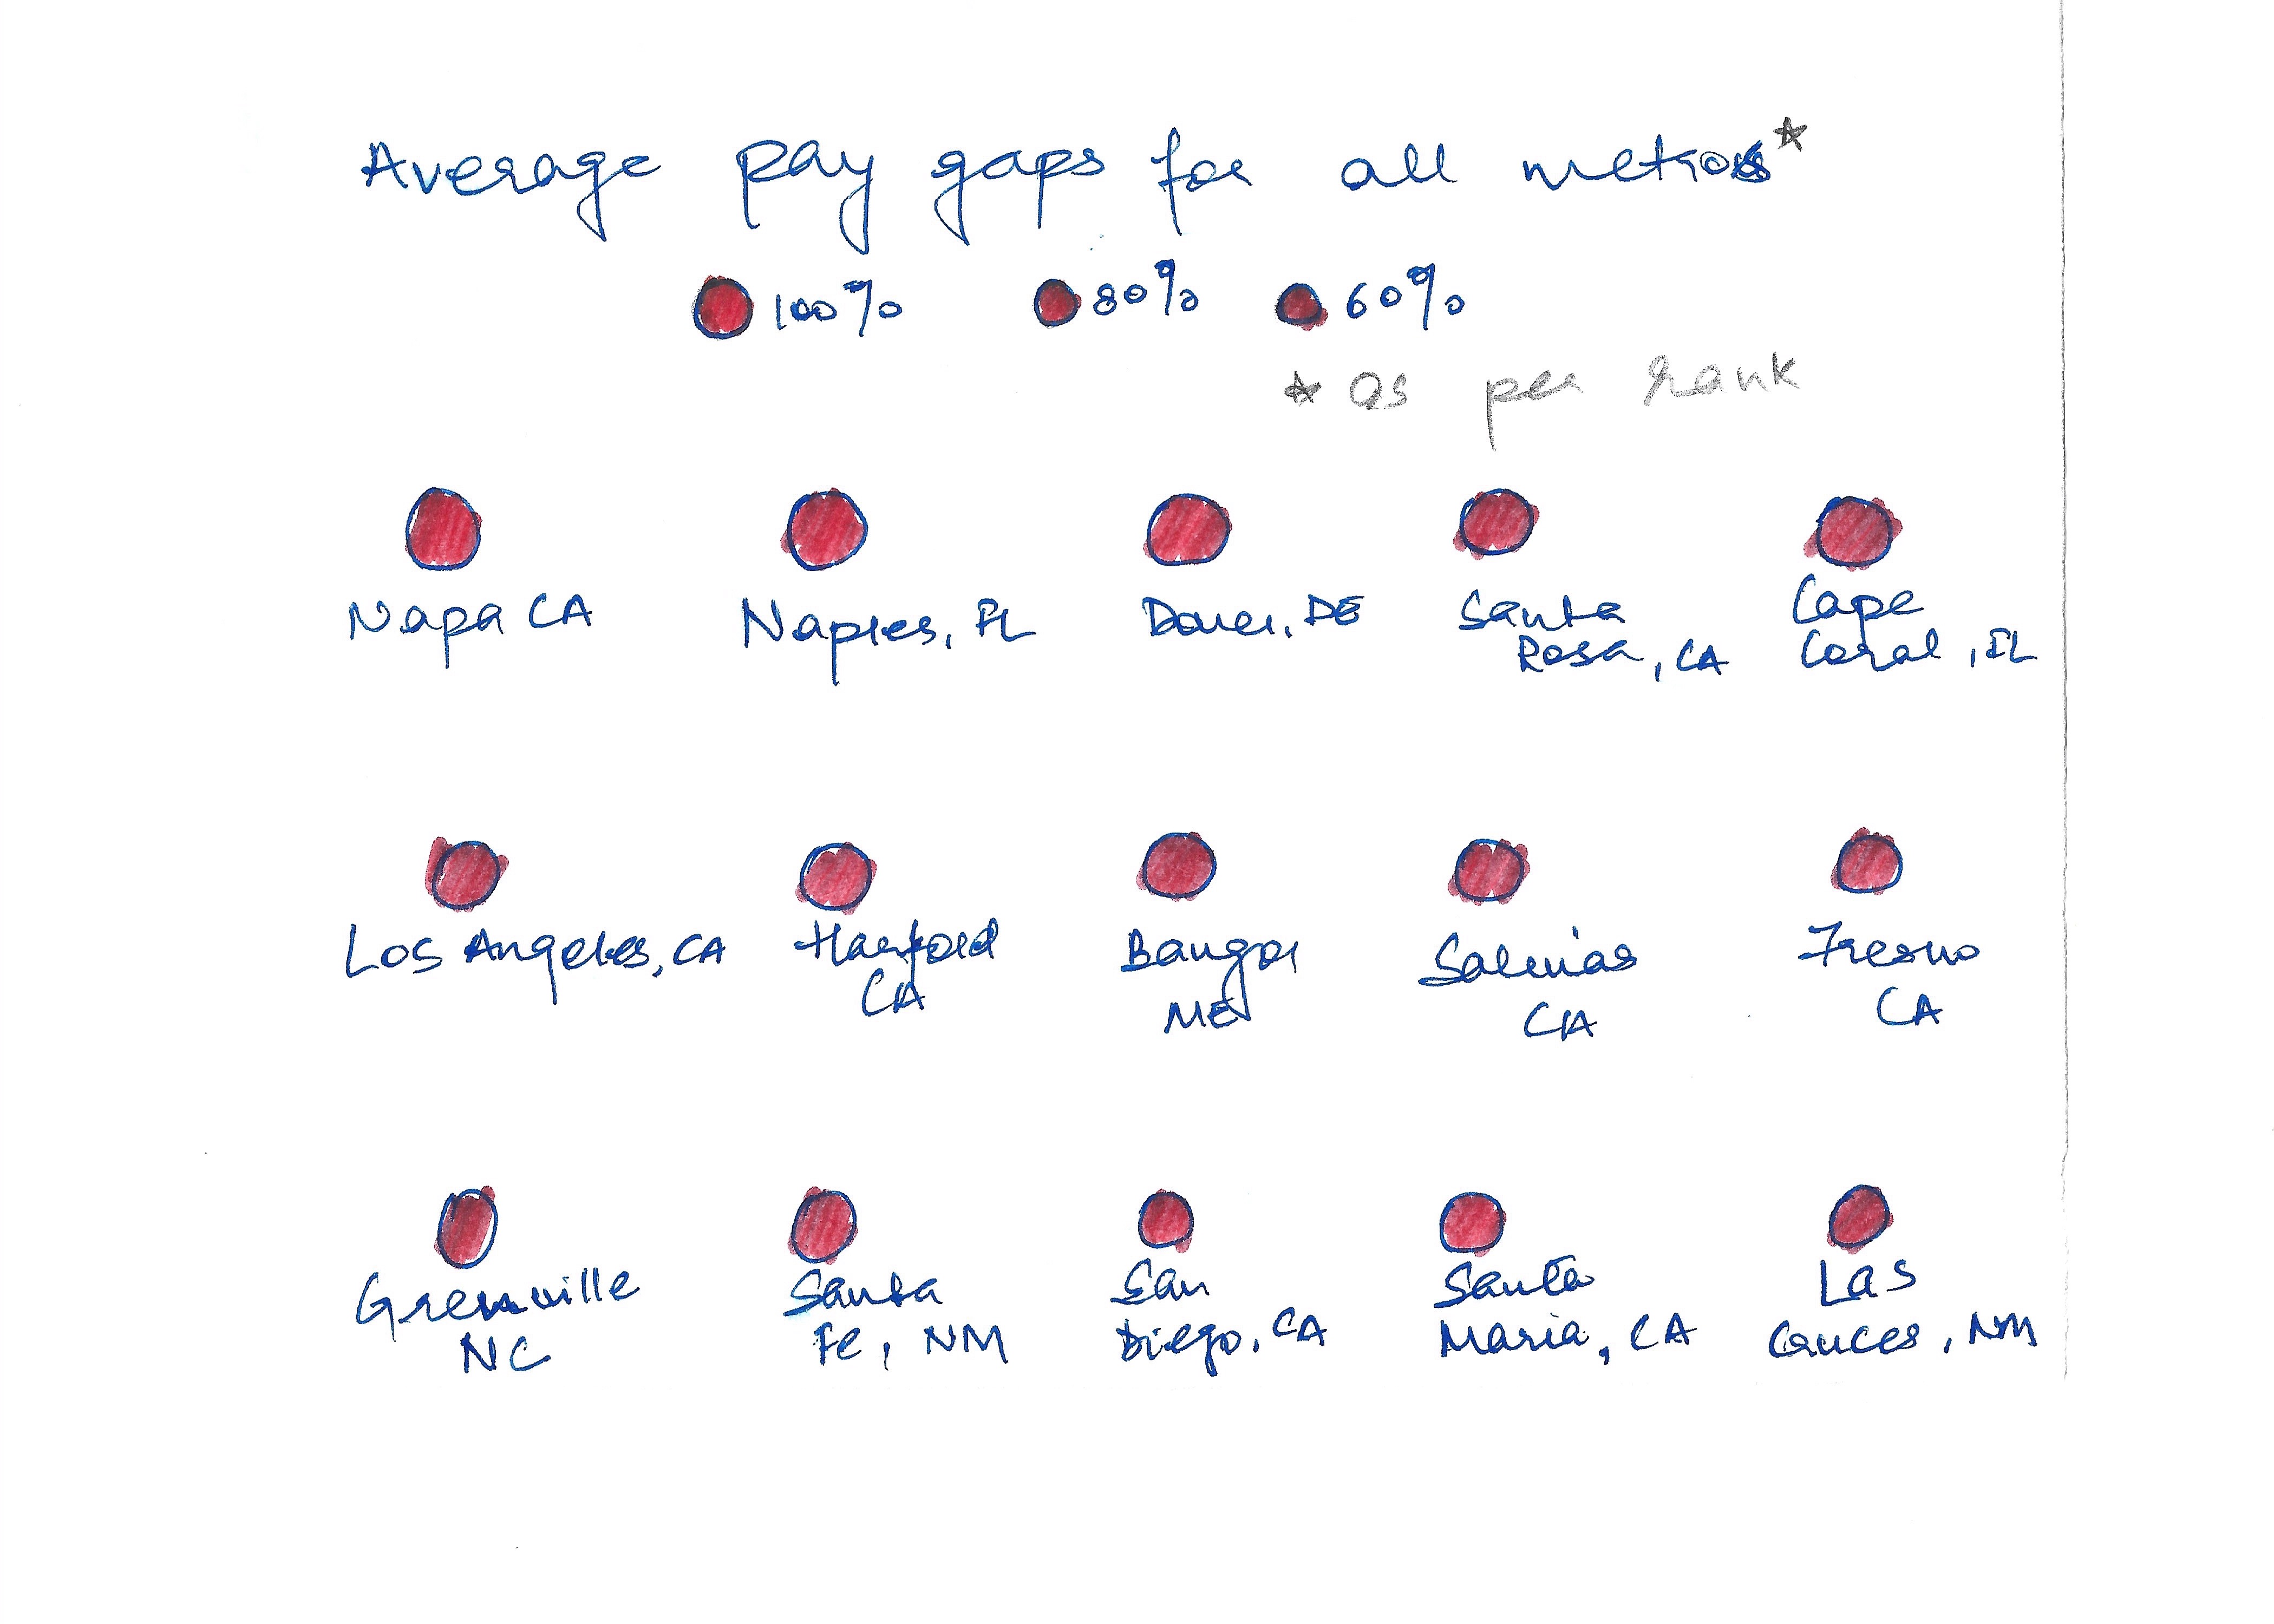 Average pay gaps for all metros*
100% 80% 60%
* as per rank
Napa CA
Naples, FL
Dover, DE
Santa
Rosa, CA
Cape
Coral, FL
Los Angeles, CA
Hanford
CA
Bangor
ME
Salinas
CA
Fresno
CA
Greenville
NC
Santa
Fe, NM
San
Diego, CA
Santa
Maria, CA
Las
Cruces, NM